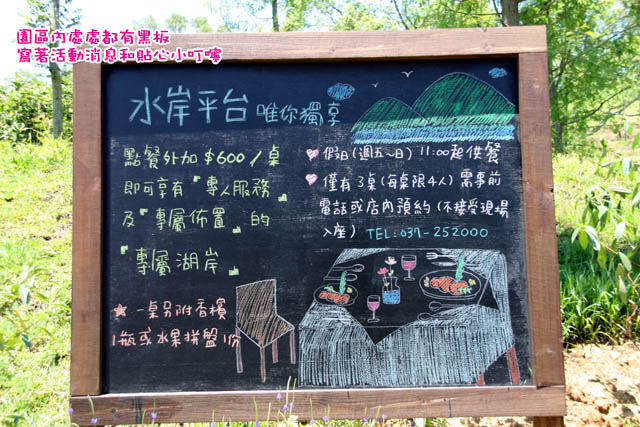 園區內處處都有黑板
寫著活動消息和貼心小叮嚀
水岸平台 唯你獨享
點餐外加$600/桌
即可享有『專人服務』
及『專屬佈置』的
『專屬湖岸』
★一桌另附香檳
1瓶或水果拼盤1份
♥假日(週五~日) 11:00起供餐
♥僅有3桌(每桌限4人) 需事前
電話或店內預約(不接受現場
入座) TEL:037-252000